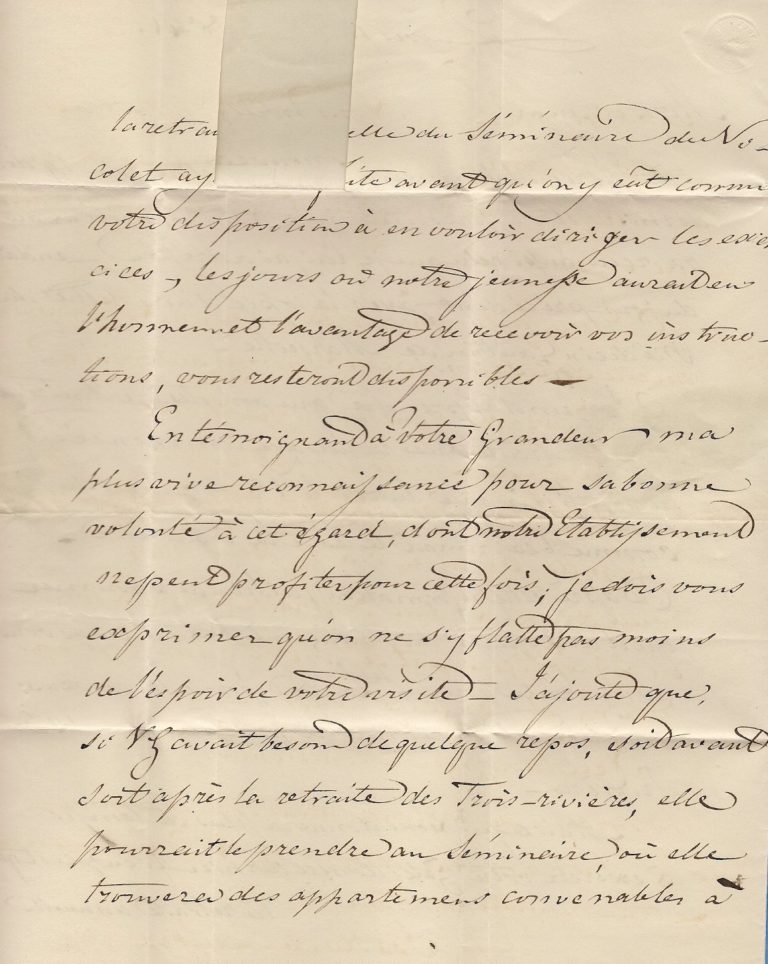 la retrai elle du Séminaire de Ni-
colet ay ite avant qu'on y eût connu
votre disposition à en vouloir diriger les exer
cices –, les jours où notre jeunesse aurait eu
l'honneur et l'avantage de recevoir vos instruc-
tions, vous resteront disponibles —
En témoignant à Votre Grandeur ma
plus vive reconnaissance pour sa bonne
volonté à cet égard, dont notre Etablissement
ne peut profiter pour cette fois, je dois vous
exprimer qu'on ne s'y flatte pas moins
de l'espoir de votre visite – J'ajoute que,
si VG avait besoin de quelque repos, soit avant
soit après la retraite des Trois-rivières, elle
pourrait le prendre au Séminaire, où elle
trouvera des appartemens convenables à